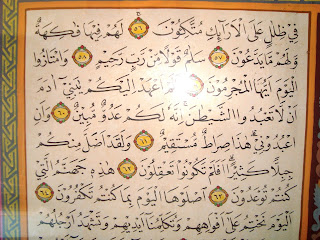 فِي ظِلَالٍ عَلَى الْأَرَائِكِ مُتَّكِئُونَ ٥٦ لَهُمْ فِيهَا فَاكِهَةٌ
وَلَهُمْ مَا يَدَّعُونَ ٥٧ سَلَامٌ قَوْلًا مِنْ رَبٍّ رَحِيمٍ ٥٨ وَامْتَازُوا
الْيَوْمَ أَيُّهَا الْمُجْرِمُونَ ٥٩ أَلَمْ أَعْهَدْ إِلَيْكُمْ يَا بَنِي آدَمَ
أَنْ لَا تَعْبُدُوا الشَّيْطَانَ إِنَّهُ لَكُمْ عَدُوٌّ مُبِينٌ ٦٠ وَأَنِ
اعْبُدُونِي هَذَا صِرَاطٌ مُسْتَقِيمٌ ٦١ وَلَقَدْ أَضَلَّ مِنْكُمْ
جِبِلًّا كَثِيرًا أَفَلَمْ تَكُونُوا تَعْقِلُونَ ٦٢ هَذِهِ جَهَنَّمُ الَّتِي
كُنْتُمْ تُوعَدُونَ ٦٣ اصْلَوْهَا الْيَوْمَ بِمَا كُنْتُمْ تَكْفُرُونَ ٦٤
الْيَوْمَ نَخْتِمُ عَلَى أَفْوَاهِهِمْ وَتُكَلِّمُنَا أَيْدِيهِمْ وَتَشْهَدُ أَرْجُلُهُمْ